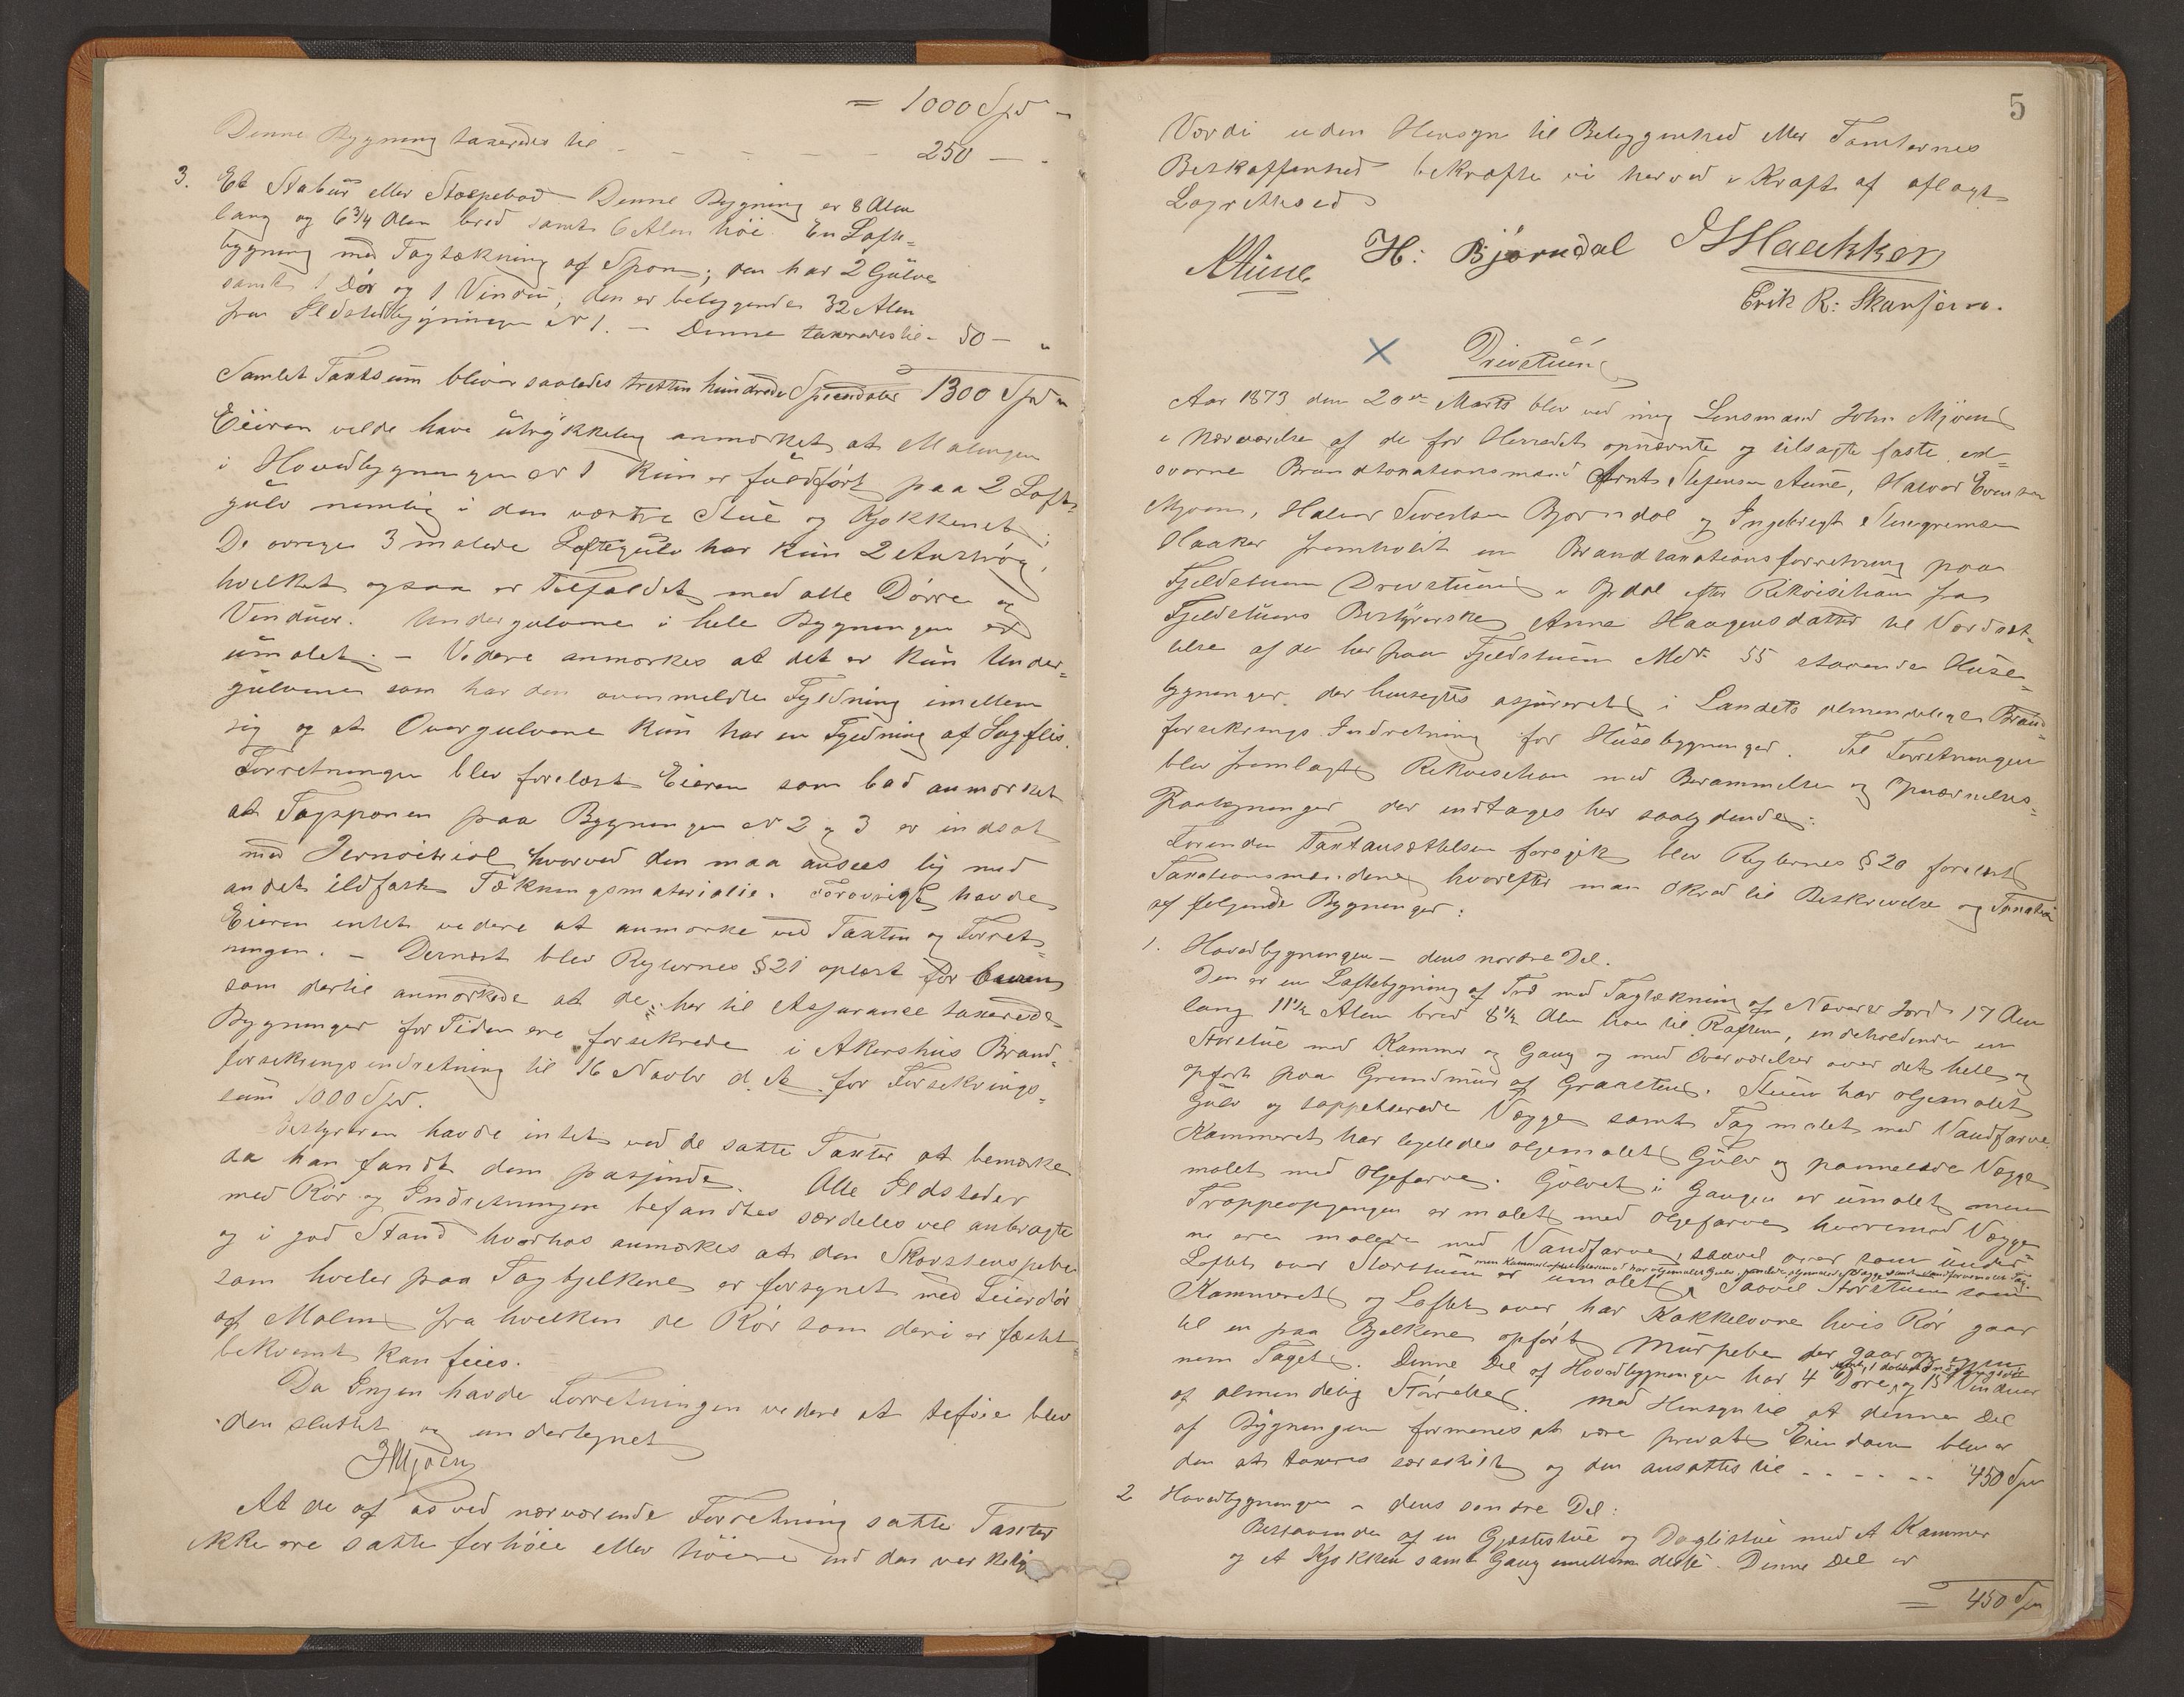 = 1000 Spd -
Denne Bygning taxeredes til - - - - - 250 — -
3. Et Stabur eller Stolpebod - Denne Bygning er 8 Alen
lang og 6 3/4 Alen bred samt 6 Alen høi. En Loft=
bygning med Tagtækning af Spon; den har 2 Gulve
samt 1 Dør og 1 Vindu; den er beliggende 32 Alen
fra Ildstedbygningen N 1. - Denne taxeredes til - 50 — "
Samlet Taxtsum bliver saaledes tretten hundrede Speciedaler 1300 Spd "
Eieren vilde have udtrykkelig anmærket at Malingen
i Hovedbygningen N 1 kun er fuldført paa 2 Lofts=
gulv nemlig i den vestre Stue og Kjøkkenet;
De øvrige 3 malede Loftsgulv har kun 2 Anstrøg,
hvilket ogsaa er Tilfældet med alle Dørre og
Vinduer. Undergulvene i hele Bygningen er
umalet. - Videre anmærkes at det er kun Under=
gulvene som har den ovenmeldte Fyldning imellem
sig og at Overgulvene kun har en Fyldning af Sagflis.
Forretningen blev forelæst Eieren som bad anmærket
at Tagsponen paa Bygningen N 2 og 3 er indsat
med Jernvitriol hvorved den maa ansees lig med
andet ildfast Tækningsmateriale. Forøvrigt havde
Eieren intet videre at anmærke ved Taxten og Forret=
ningen. - Dernæst blev Reglernes § 21 oplæst for Eieren
som dertil anmærkede at de her til Assurance taxerede
Bygninger for Tiden ere forsikrede i Akershus Brand=
forsikringsindretning til 16 Novbr d. A. for Forsikrings=
sum 1000 Spd.
Bestyreren havde intet ved de satte Taxter at bemærke
da han fandt dem passende. Alle Ildsteder
med Rør og Indretninger befandtes særdeles vel anbragte
og i god Stand hvorhos anmærkes at den Skorstenspibe
som hviler paa Tagbjelkene er forsynet med Feierdør
af Malm fra hvilken de Rør som deri er fæstet
bekvemt kan feies.
Da Ingen havde Forretningen videre at tilføie blev
den sluttet og undertegnet
JMjøen
At de af os ved nærværende Forretning satte Taxter
ikke ere satte forhøie eller høiere end den verkelige
5
Værdi uden Hensyn til Beliggenhed eller Tomternes
Beskaffenhed bekræfte vi herved i Kraft af aflagt
Lagrettesed
AAune H: Bjørndal IHaakker
Erik R: Skarsem.
X Drivstuen
Aar 1873 den 20de Marts blev ved mig Lensmand John Mjøen
i Nærværelse af de for Herredet opnævnte og tilsagte faste ed=
svorne Brandtaxationsmænd Arnt Stefensen Aune, Halvor Evensen
Mjøen, Halvor Sivertsen Bjørndal og Ingebrigt Steingrimsen
Haaker fremholdt en Brandtaxationsforretning paa
Fjeldstuen Drivstuen i Opdal efter Rekvisition fra
Fjeldstuens Bestyrerske Anne Haagensdatter til Værdsæt=
telse af de her paa Fjeldstuen Mdr 55 staaende Huse=
bygninger, der hensigtes assureret i Landets almindelige Brand=
forsikrings Indretning for Husebygninger. Til Forretningen
blev fremlagt Rekvisition med Berammelse og Opnævnelses=
Paategninger der indtages her saalydende:
Førenden Taxtansættelsen foregik blev Reglernes § 20 forelæst
Taxationsmændene hvorefter man skred til Beskrivelse og Taxation
af følgende Bygninger:
1. Hovedbygningen - dens nordre Del.
Den er en Loftsbygning af Træ med Tagtækning af Never og Jord 17 Alen
lang 11 1/2 Alen bred 8 1/2 Alen høi til Raften, indeholdende en
Storstue med Kammer og Gang og med Overværelser over det hele og
opført paa Grundmur af Graasten. Stuen har oljemalet
Gulv og tappetserede Vægge samt Tag malet med Vandfarve.
Kammeret har ligeledes oljemalet Gulv og pannelede Vægge
malet med Oljefarve. Gulvet i Gangen er umalet men
Trappeopgangen er malet med Oljefarve hvorimod Vægge
ne ere malede med Vandfarve, saavel over som under
men Kammerloftet derimod har oljemalet Gulv, panelede oljemalede Vægge samt vandfarvemalet Tag.
Loftet over Storstuen er umalet. Saavel Storstuen som
Kammeret og Loftet over har Kakkelovne hvis Rør gaar
til en paa Bjelkene opført Murpibe der gaar op gjen
nem Taget. Denne Del af Hovedbygningen har 4 Døre, og 15 Vinduer
af almindelig Størrelse. Med Hensyn til at denne Del
af Bygningen formenes at være privat Eiendom blev
den at taxeres særskilt og den ansattes til - - - - - 450 Spd
2 Hovedbygningen - dens søndre Del:
Bestaaende af en Gjæstestue og Daglistue med et Kammer
og et Kjøkken samt Gang imellem disse. Denne Del er
= 450 Spd